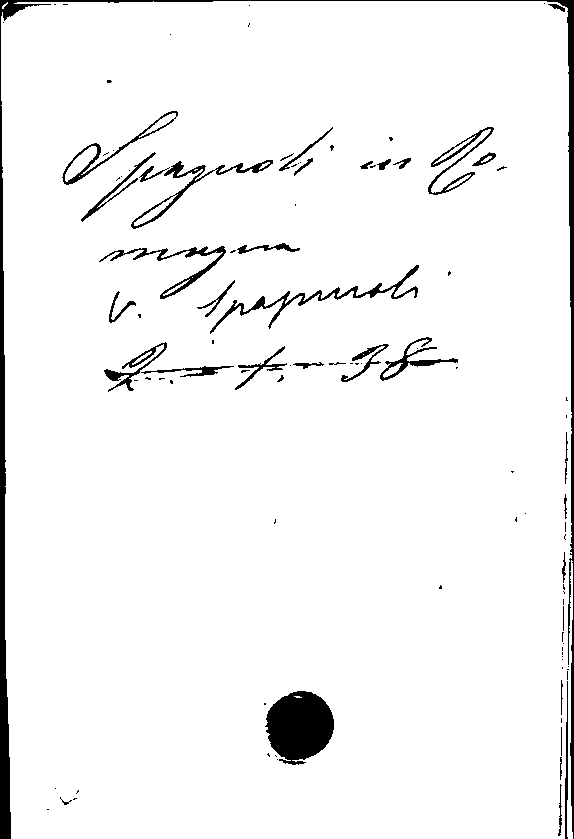 Spagnoli in Ro-
magna
v. Spagnuoli
2. 1. 38